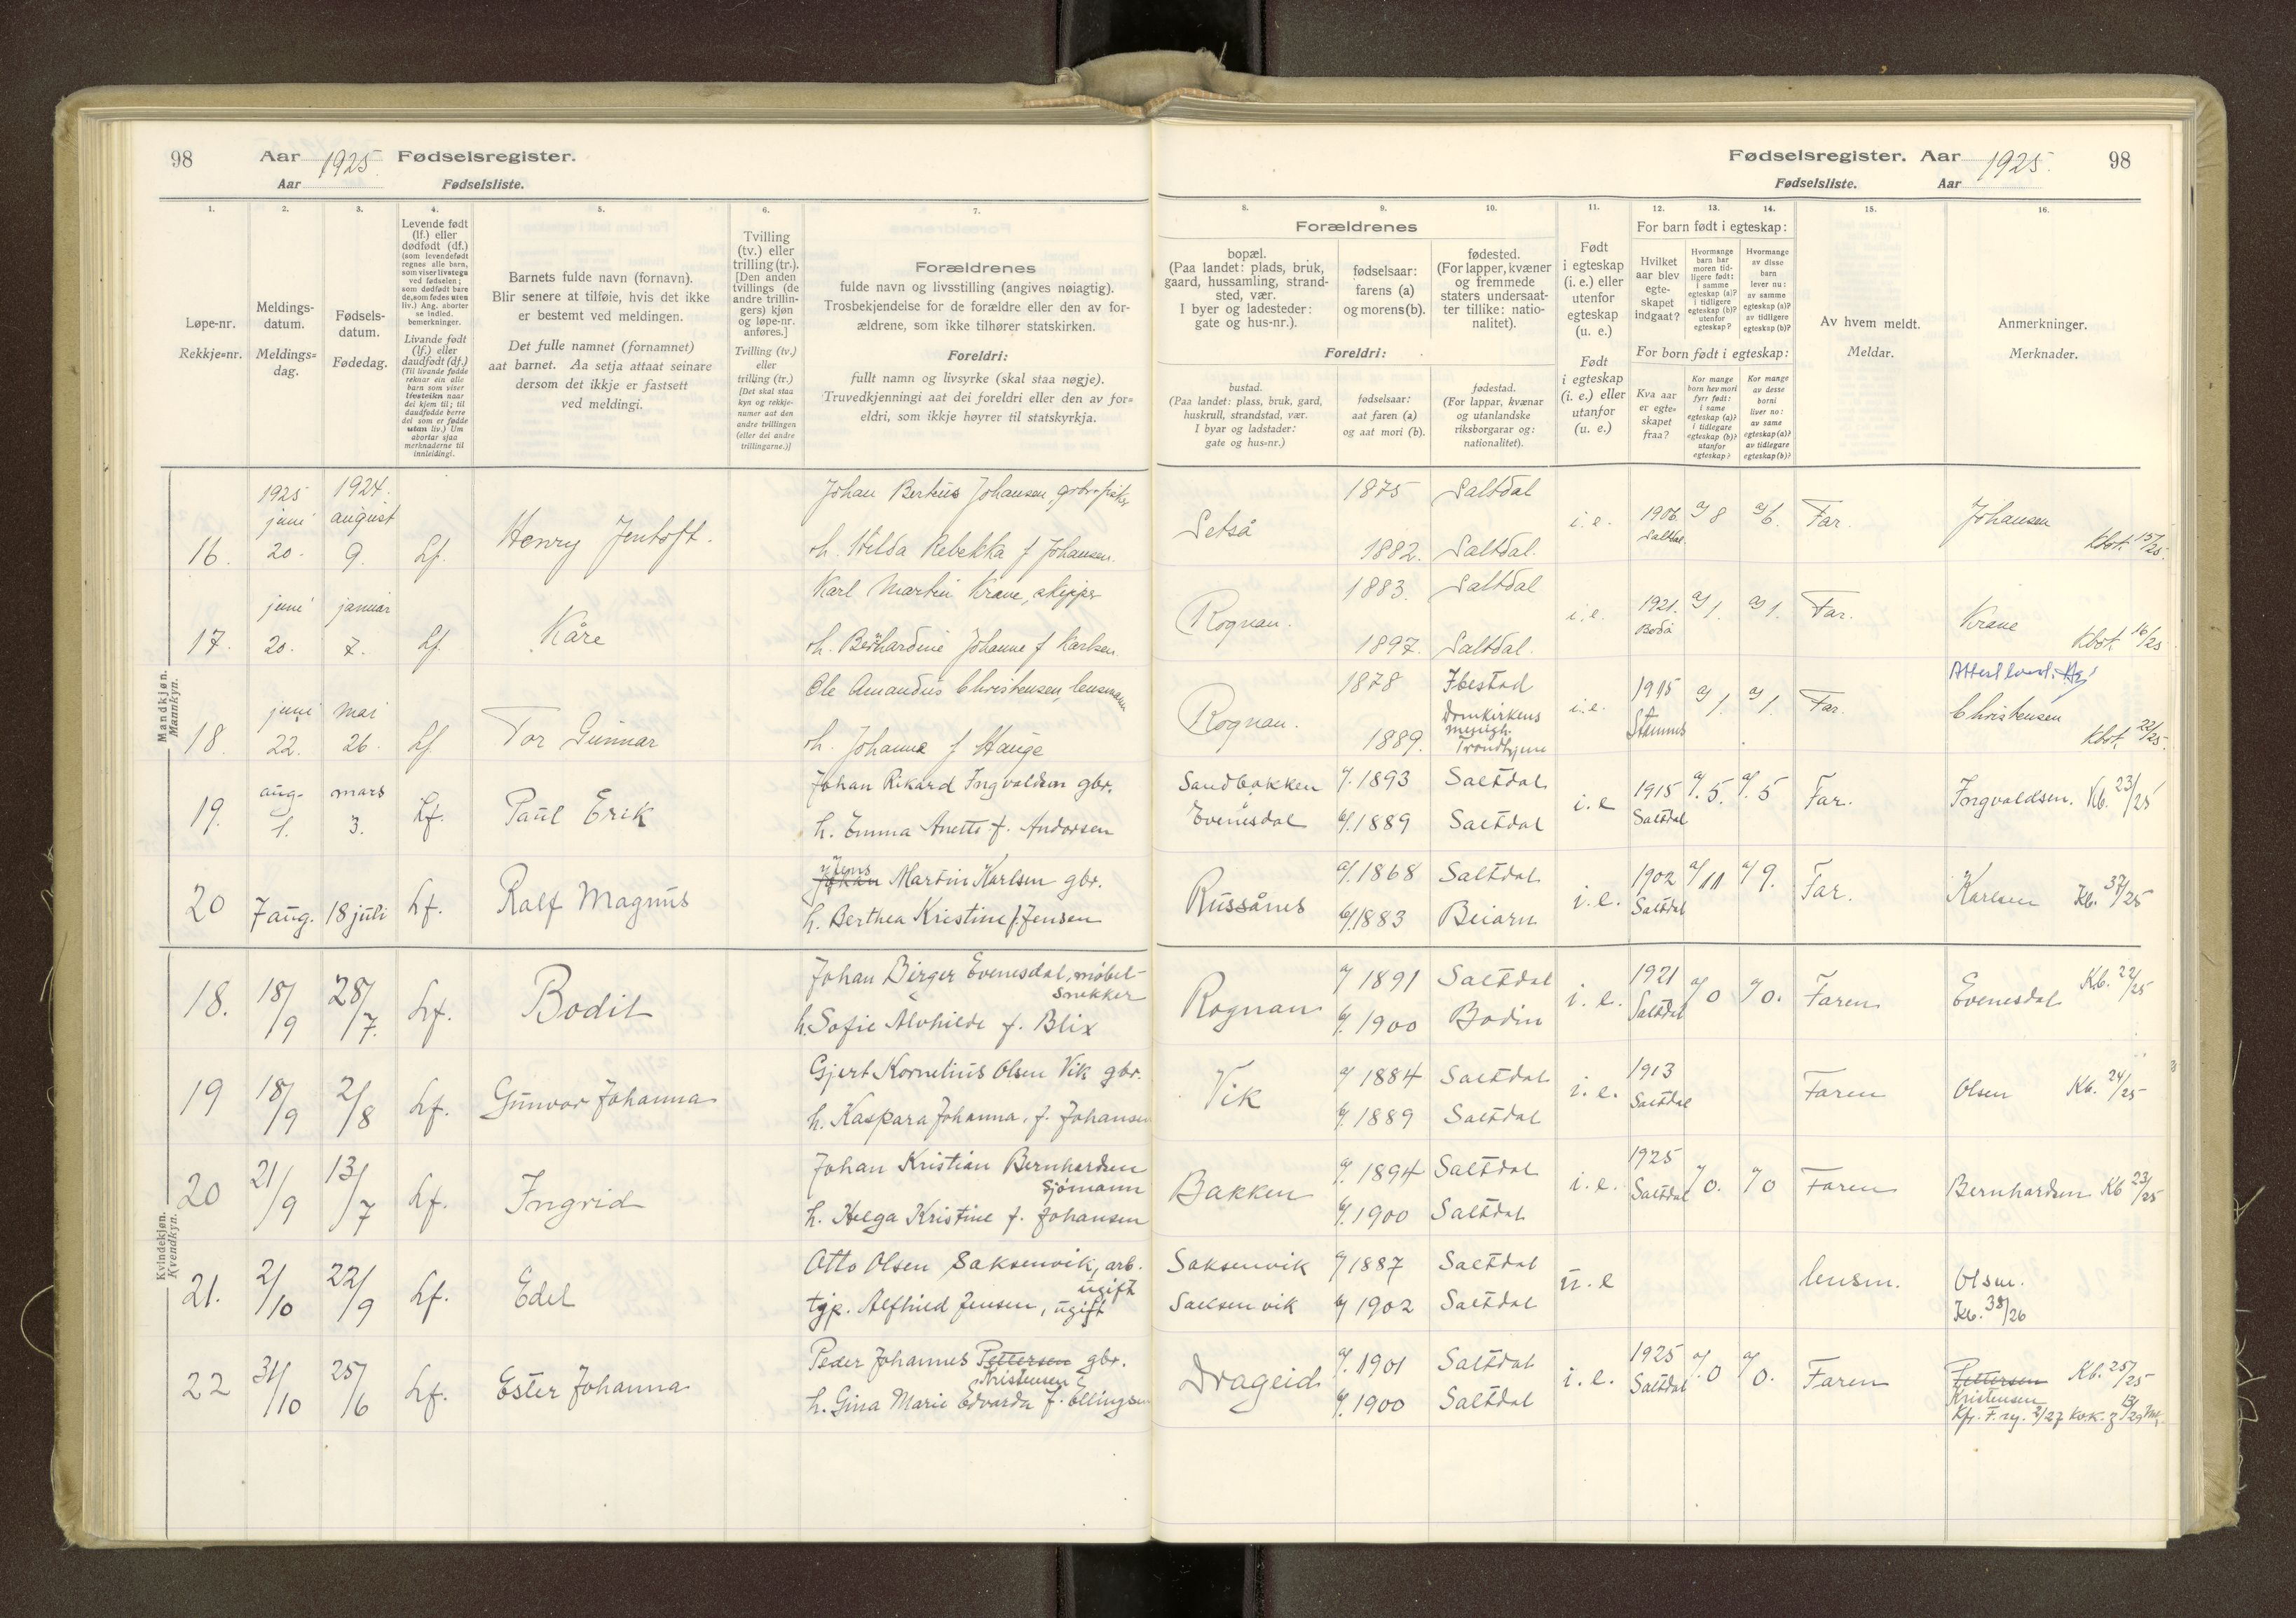 98 Aar 1925. Fødselsregister.
Aar Fødselsliste.
Fødselsregister. Aar 1925. 98
Fødselsliste. Aar
1. 2. 3. 4. 5. 6. 7.
Løpe-nr.
Rekkje=nr.
Meldings-
datum.
Meldings=
dag.
Fødsels-
datum.
Fødedag.
Levende født
(lf.) eller
dødfødt (df.)
(som levendefødt
regnes alle barn,
som viser livstegn
ved fødselen;
som dødfødt bare
de, som fødes uten
liv.) Ang. aborter
se indled.
bemerkninger.
Livande født
(lf.) eller
daudfødt (df.)
(Til livande fødde
reknar ein alle
born som viser
livsteikn naar
dei kjem til; til
daudfødde berre
dei som er fødde
utan liv.) Um
abortar sjaa
merknaderne til
innleidingi.
Barnets fulde navn (fornavn).
Blir senere at tilføie, hvis det ikke
er bestemt ved meldingen.
Det fulle namnet (fornamnet)
aat barnet. Aa setja attaat seinare
dersom det ikkje er fastsett
ved meldingi.
Tvilling
(tv.) eller
trilling (tr.).
[Den anden
tvillings (de
andre trillin-
gers) kjøn
og løpe-nr.
anføres.]
Tvilling (tv.)
eller
trilling (tr.)
[Det skal staa
kyn og rekkje-
numer aat den
andre tvillingen
(eller dei andre
trillingarne.)]
Forældrenes
fulde navn og livsstilling (angives nøiagtig).
Trosbekjendelse for de forældre eller den av for-
ældrene, som ikke tilhører statskirken.
Foreldri:
fullt namn og livsyrke (skal staa nøgje).
Truvedkjenningi aat dei foreldri eller den av for=
eldri, som ikkje høyrer til statskyrkja.
8. 9. 10. 11. 12. 13. 14. 15. 16.
Forældrenes
bopæl.
(Paa landet: plads, bruk,
gaard, hussamling, strand-
sted, vær.
I byer og ladesteder:
gate og hus-nr.).
fødselsaar:
farens (a)
og morens (b).
fødested.
(For lapper, kvæner
og fremmede
staters undersaat-
ter tillike: natio-
nalitet).
Foreldri:
bustad.
(Paa landet: plass, bruk, gard,
huskrull, strandstad, vær.
I byar og ladstader:
gate og hus-nr.)
fødselsaar:
aat faren (a)
og aat mori (b).
fødestad.
(For lappar, kvænar
og utanlandske
riksborgarar og:
nationalitet).
Født
i egteskap
(i. e.) eller
utenfor
egteskap
(u. e.)
Født
i egteskap
(i. e.) eller
utanfor
(u. e.)
For barn født i egteskap:
Hvilket
aar blev
egte-
skapet
indgaat?
Hvormange
barn har
moren tid-
ligere født:
i samme
egteskap (a)?
i tidligere
egteskap (b)?
utenfor
egteskap?
Hvormange
av disse
barn
lever nu:
av samme
egteskap (a)?
av tidligere
egteskap (b)?
For born født i egteskap:
Kva aar
er egte=
skapet
fraa?
Kor mange
born hev mori
fyrr født:
i same
egteskap (a)?
i tidlegare
egteskap (b)?
utanfor
egteskap?
Kor mange
av desse
borni
liver no:
av same
egteskap (a)?
av tidlegare
egteskap (b)?
Av hvem meldt.
Meldar.
Anmerkninger.
Merknader.
Mandkjøn.
Mannkyn.
16. 1925 juni 20. 1924. august 9. Lf. Henry Jentoft. Johan Berteus Johansen, gbr. fisker
h. Hilda Rebekka f Johansen.
Setså 1875 Saltdal i. e. 1906. Saltdal. a/8 a/6. Far. Johansen Kbot. 15/25.
1882. Saltdal.
17. juni 20. januar 7. Lf. Kåre Karl Martin Krane, skipper
h. Bernhardine Johanne f Karlsen.
Rognan. 1883. Saltdal i. e. 1921. Bodø a/1. a/1. Far. Krane Kbot. 16/25
1897. Saltdal.
18. juni 22. mai 26. Lf Tor Gunnar Ole Amandus Christensen, lensmann
h. Johanna f Hauge
Rognan. 1878 Ibestad i. e. 1915 Stamnes a/1. a/1. Far. Christensen Kbot. 22/25.
1889. Domkirkens
menigh.
Trondhjem
19. aug. 1. mars 3. Lf. Paul Erik Johan Rikard Ingvaldsen gbr.
h. Emma Anette f. Andorsen
Sandbakken
Evenesdal a/. 1893 Saltdal i. e 1915 Saltdal a/. 5. a/. 5 Far. Ingvaldsen. Kb. 23/25
b/. 1889 Saltdal
20 7 aug. 18 juli Lf. Ralf Magnus Johan Jens Martin Karlsen gbr.
h. Berthea Kristine f. Jensen
Russånes a/. 1868 Saltdal i. e. 1902 Saltdal a/ 11 a/ 9. Far. Karlsen Kb. 37/25
b/. 1883 Beiarn
Kvindekjøn.
Kvendkyn.
18. 18/9 28/7. Lf. Bodil Johan Birger Evenesdal, møbel-
snekker
h. Sofie Alvhilde f. Blix
Rognan a/ 1891 Saltdal i. e. 1921 Saltdal a/ 0 a/ 0. Faren Evenesdal Kb. 22/25
b/. 1900 Bodin
19 18/9 2/8 Lf. Gunvor Johanna Gjert Kornelius Olsen Vik gbr.
h. Kaspara Johanna, f. Johansen
Vik a/ 1884 Saltdal i. e. 1913 Saltdal Faren Olsen Kb. 24/25
b/. 1889 Saltdal
20 21/9 13/7 Lf. Ingrid Johan Kristian Bernhardsen
sjømann
h. Helga Kristine f. Johansen
Bakken a/. 1894 Saltdal i. e. 1925 Saltdal a/ 0. a/ 0 Faren Bernhardsen Kb 23/25
b/. 1900 Saltdal
21. 2/10 22/9 Lf. Edel Otto Olsen Saksenvik, arb.
ugift
tjp. Alfhild Jensen, ugift
Saksenvik a/ 1887 Saltdal u. e lensm. Olsen.
Saksenvik b/ 1902 Saltdal Kb. 38/26
22 31/10 25/6 Lf. Ester Johanna Peder Johannes Pettersen gbr.
Kristensen
h. Gina Marie Edvarda f. Ellingsen
Drageid a/. 1901 Saltdal i. e. 1925 Saltdal a/. 0 a/ 0. Faren Pettersen Kb. 25/25
b/. 1900 Saltdal Kristensen